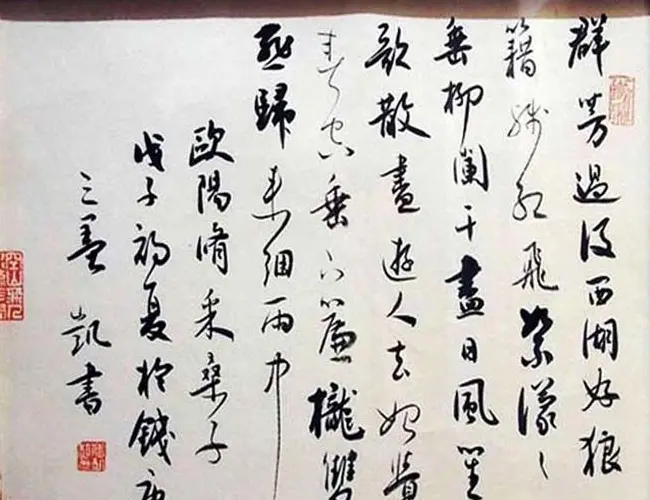 群芳過後西湖好狼
籍殘紅飛絮濛〻
垂柳闌干盡日風笙
歌散盡遊人去始覺
春空垂下簾櫳雙
燕歸來細雨中
歐陽脩采桑子
戊子初夏於錢唐
三墨 凱書